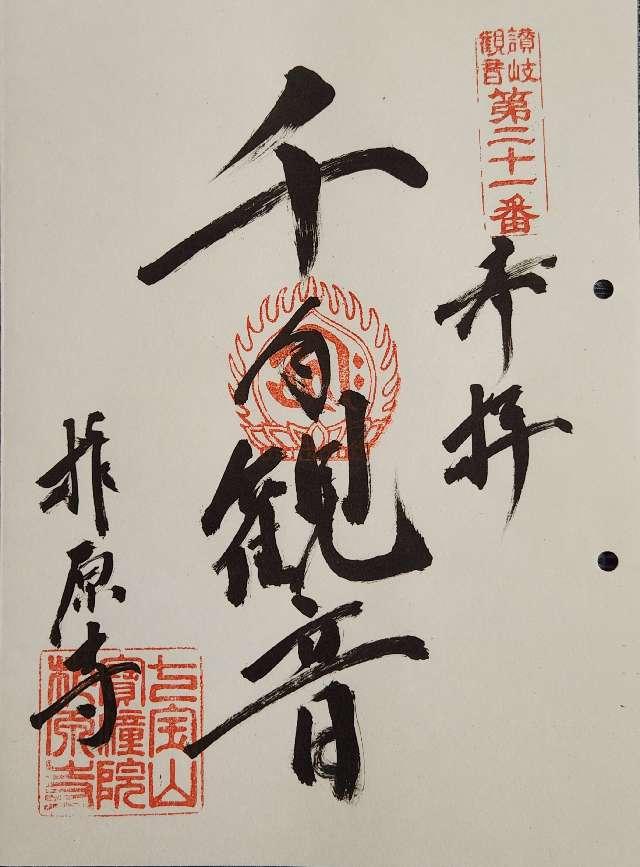 讃岐
観音
第二十一番
奉拝
千 観音
柞原寺
七宝山
寶幢院
柞原寺